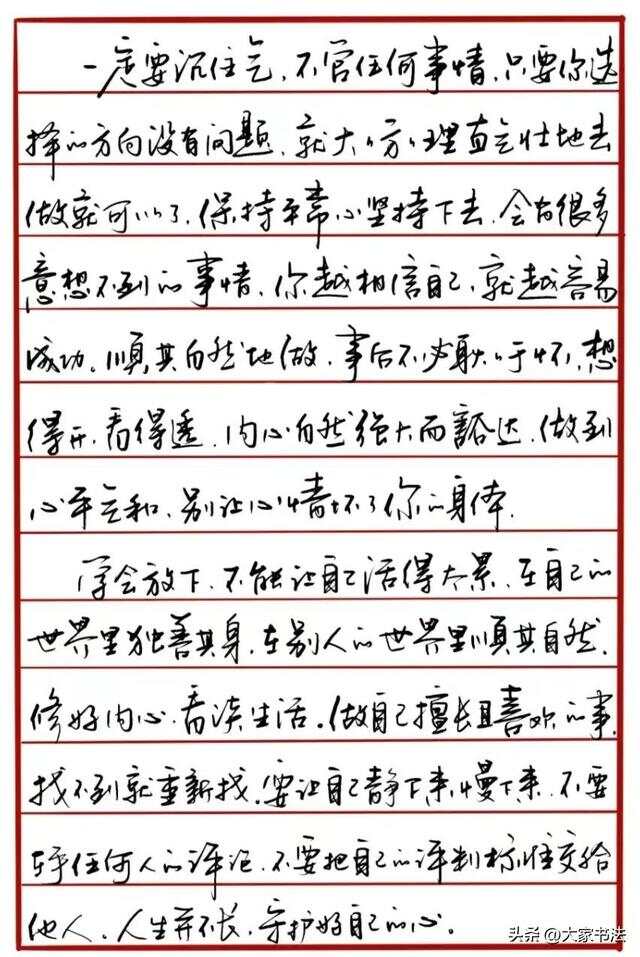 一定要沉住气，不管任何事情，只要你选
择的方向没有问题，就大大方方理直气壮地去
做就可以了，保持平常心坚持下去，会有很多
意想不到的事情，你越相信自己，就越容易
成功。顺其自然地做，事后不必耿耿于怀，想
得开，看得透，内心自然强大而豁达，做到
心平气和，别让心情坏了你的身体。
学会放下，不能让自己活得太累，在自己的
世界里独善其身，在别人的世界里顺其自然，
修好内心，看淡生活。做自己擅长且喜欢的事，
找不到就重新找。要让自己静下来，慢下来，不要
在乎任何人的评论，不要把自己的评判标准交给
他人，人生并不长，守护好自己的心。
头条@大家书法